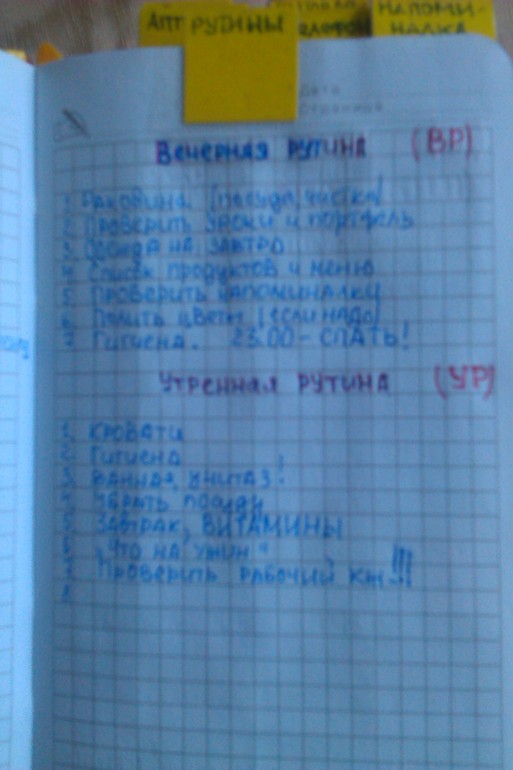 АПТ РУТИНЫ
НАПОМИ-
НАЛКА
Дата
Страница
Вечерняя рутина (ВР)
1. Раковина (посуда, чистка)
2. Проверить уроки и портфель
3. Одежда на завтра
4. Список продуктов и меню
5. Проверить напоминалку
6. Полить цветы (если надо)
7. Гигиена. 23.00 - СПАТЬ!
Утренная рутина (УР)
1. Кровати
2. Гигиена
3. Ванна, унитаз!
4. Убрать посуду
5. Завтрак, ВИТАМИНЫ
6. Что на ужин?
7. Проверить рабочий !!!
8